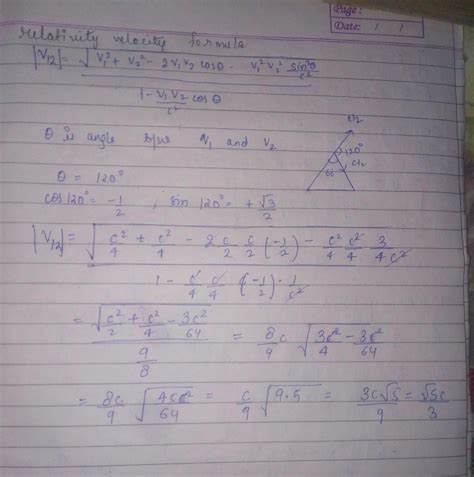 Page :
Date: / /
relativity velocity formula
|V₁₂| = √(V₁² + V₂² - 2V₁V₂ cosθ - V₁²V₂² sin²θ/c²) / (1 - V₁V₂/c² cosθ)
θ is angle b/w V₁ and V₂
c/2
120°
c/2
60
θ = 120°
cos120° = -1/2 , sin 120° = +√3/2
|V₁₂| = √(c²/4 + c²/4 - 2c/2 c/2 (-1/2) - c²/4 c²/4 3/4c²)
1 - c/4 c/4 (-1/2) · 1/c²
= √(c²/2 + c²/4 - 3c²/64) / (9/8) = 8c/9 √(3c²/4 - 3c²/64)
= 8c/9 √(45c²/64) = c/9 √(9·5) = 3c√5/9 = √5c/3